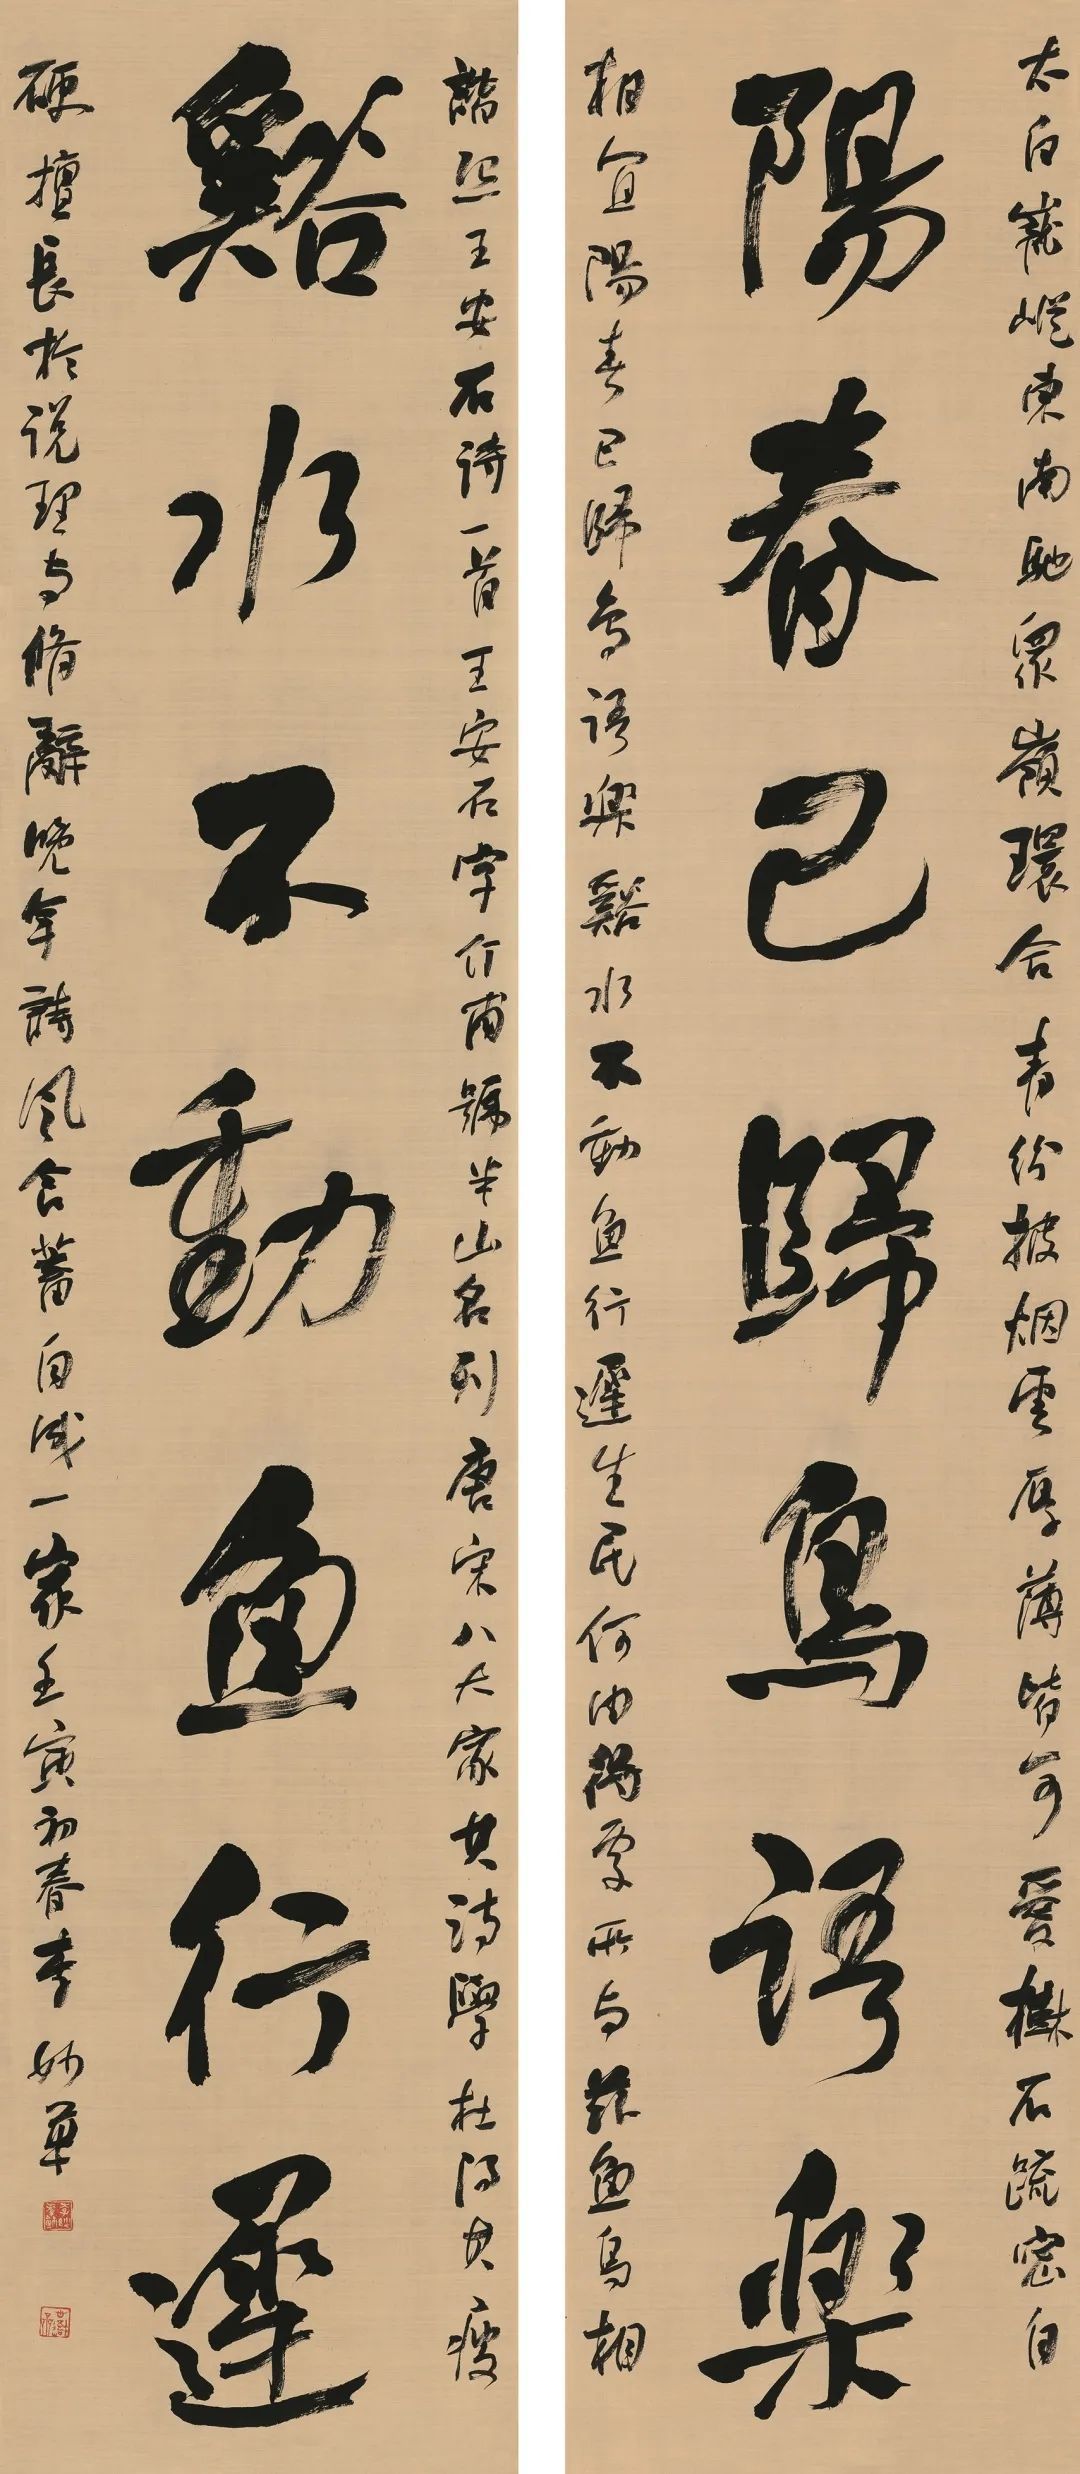 太白巃嵸東南馳眾嶺環合青紛披烟雲厚薄皆可愛樹石疏密自
陽春已歸鳥語樂
相宜陽春已歸鳥語樂谿水不動魚行遲生民何由得處所与兹魚鳥相
諧熙王安石詩一首王安石字介甫號半山名列唐宋八大家其诗學杜得其瘦
谿水不動魚行遲
硬擅長於说理与脩辭晚年詩風含蓄自成一家壬寅初春李妙華